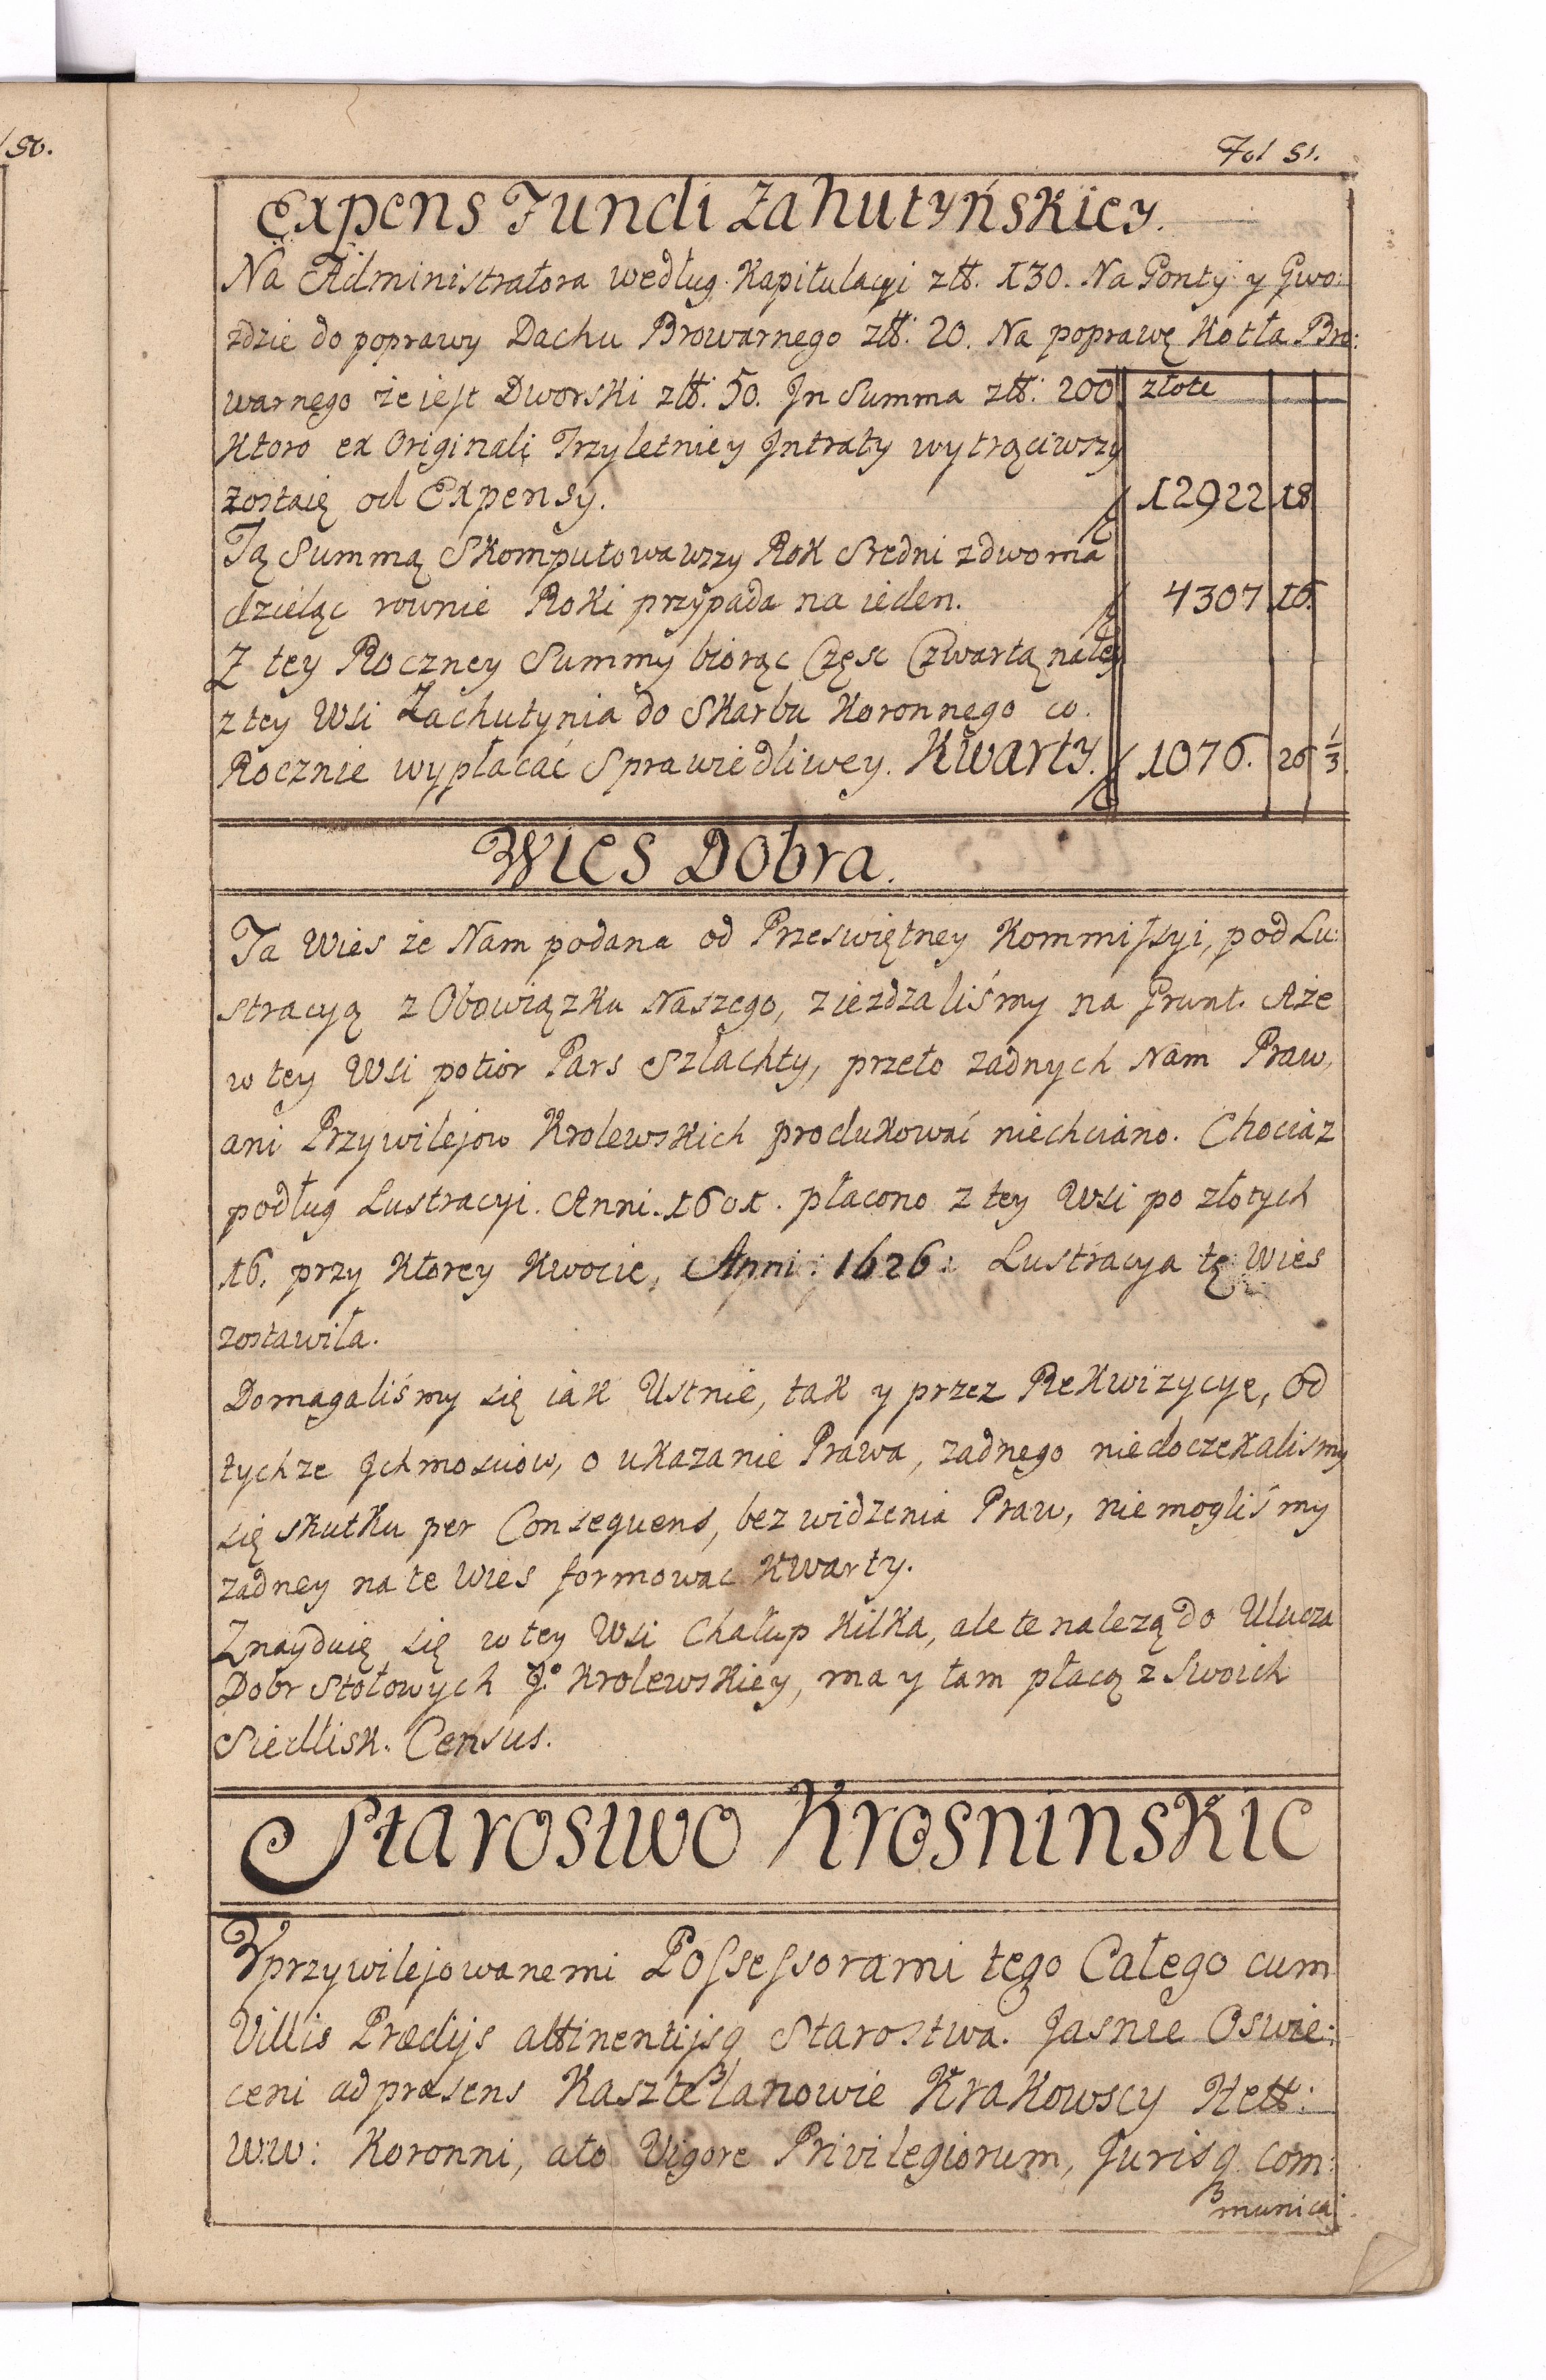 50.
Fol 51.
Expens Fundi Zahutyńskiey.
Na Administratora według Kapitulacyi złł. 130. Na Gonty y Gwo:
zdzie do poprawy Dachu Browarnego złł: 20. Na poprawę Kotła Bro:
warnego że iest Dworski złł: 50. Jn Summa złł: 200 złote
Ktoro ex Originali Trzyletniey Jntraty wytrąciwszy
zostaię od Expensy. 12922 18
Tą Summą Skomputowawszy Rok Sredni zdwoma
dzieląc rownie Roki przypada na ieden. 4307 16.
Z tey Roczney Summy biorąc Częsc Czwartą należy
z tey Wsi Zachutynia do Skarbu Koronnego co.
Rocznie wypłacać Sprawiedliwey. Kwarty. 1076. 26 1/3.
Wies Dobra.
Ta Wies że Nam podana od Przeswiętney Kommissyi, pod Lu:
stracyą z Obowiązku Naszego, ziezdzaliśmy na Grunt. Aże
w tey Wsi potior Pars Szlachty, przeto zadnych Nam Praw,
ani Przywilejow Krolewskich produkować niechciano. Chociaz
podług Lustracyi. Anni. 1601. płacono z tey Wsi po złotych
16. przy Ktorey Kwocie, Anni: 1626: Lustracya tę Wies
zostawiła.
Domagaliśmy się iak Ustnie, tak y przez Rekwizycyę, Od
tychze Jchmosciow, o ukazanie Prawa, zadnego niedoczekalismy
się skutku per Consequens, bez widzenia Praw, niemogliśmy
zadney na te Wies formowac Kwarty.
Znayduię się w tey Wsi Chałup Kilka, ale te nalezą do Ulucza
Dobr Stołowych J.º Krolewskiey, ma y tam płacą z Swoich
Siedlisk. Census.
Starostwo Krosninskie
Vprzywilejowanemi Possessorami tego Całego cum
Villis Prædijs attinentijsq Starostwa. Jasnie Oswie:
ceni ad præsens Kasztelanowie Krakowscy Hett:
W:W: Koronni, ato Vigore Privilegiorum, Jurisq com:
munica: